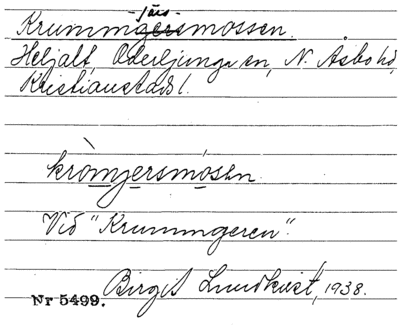 -järs-
Krummgersmossen.
Heljalt, Oderljunga sn, N. Åsbo hd,
Kristianstads l.
kròmjersmósen
Vid "Krummgeren".
Birgit Lundkvist, 1938.
Nr 5499.